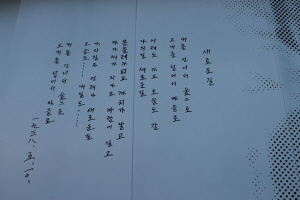 새로운 길
내를 건너서 숲으로
고개를 넘어서 마을로
어제도 가고 오늘도 갈
나의 길 새로운 길
문들레가 피고 까치가 날고
아가씨가 지나고 바람이 일고
나의 길은 언제나 새로운 길
오늘도…… 내일도……
내를 건너서 숲으로
고개를 넘어서 마을로
一九三八. 五. 一〇.